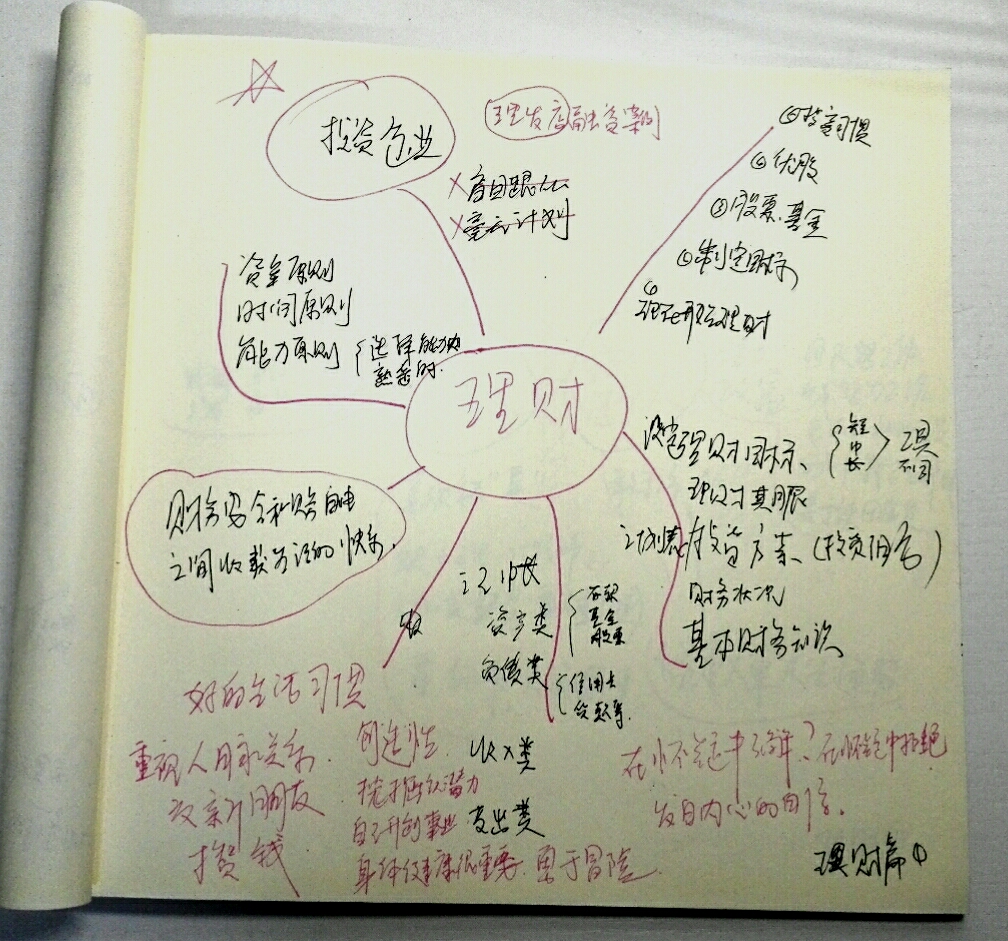 投资创业
理发店融资案例
盲目跟从
毫无计划
⑤投资习惯
④优股
③股票.基金
②制定目标
①现在开始理财
资金原则
时间原则
能力原则
选择能力内
熟悉的.
理财
设定理财目标、
短
中
长
工具
不同
理财其限
计划表
投资方案、(投资组合)
财务状况
基本财务知识
财务安全和财务自由
之间收获生活的快乐.
记账
资产类
存款
基金
股票
负债类
信用卡
贷款等.
收入类
支出类
好的生活习惯
重视人用和关系
交新朋友
攒钱
创造性
挖掘潜力
自己开创事业
身体健康很重要.勇于冒险.
发自内心的自信.
理财篇①